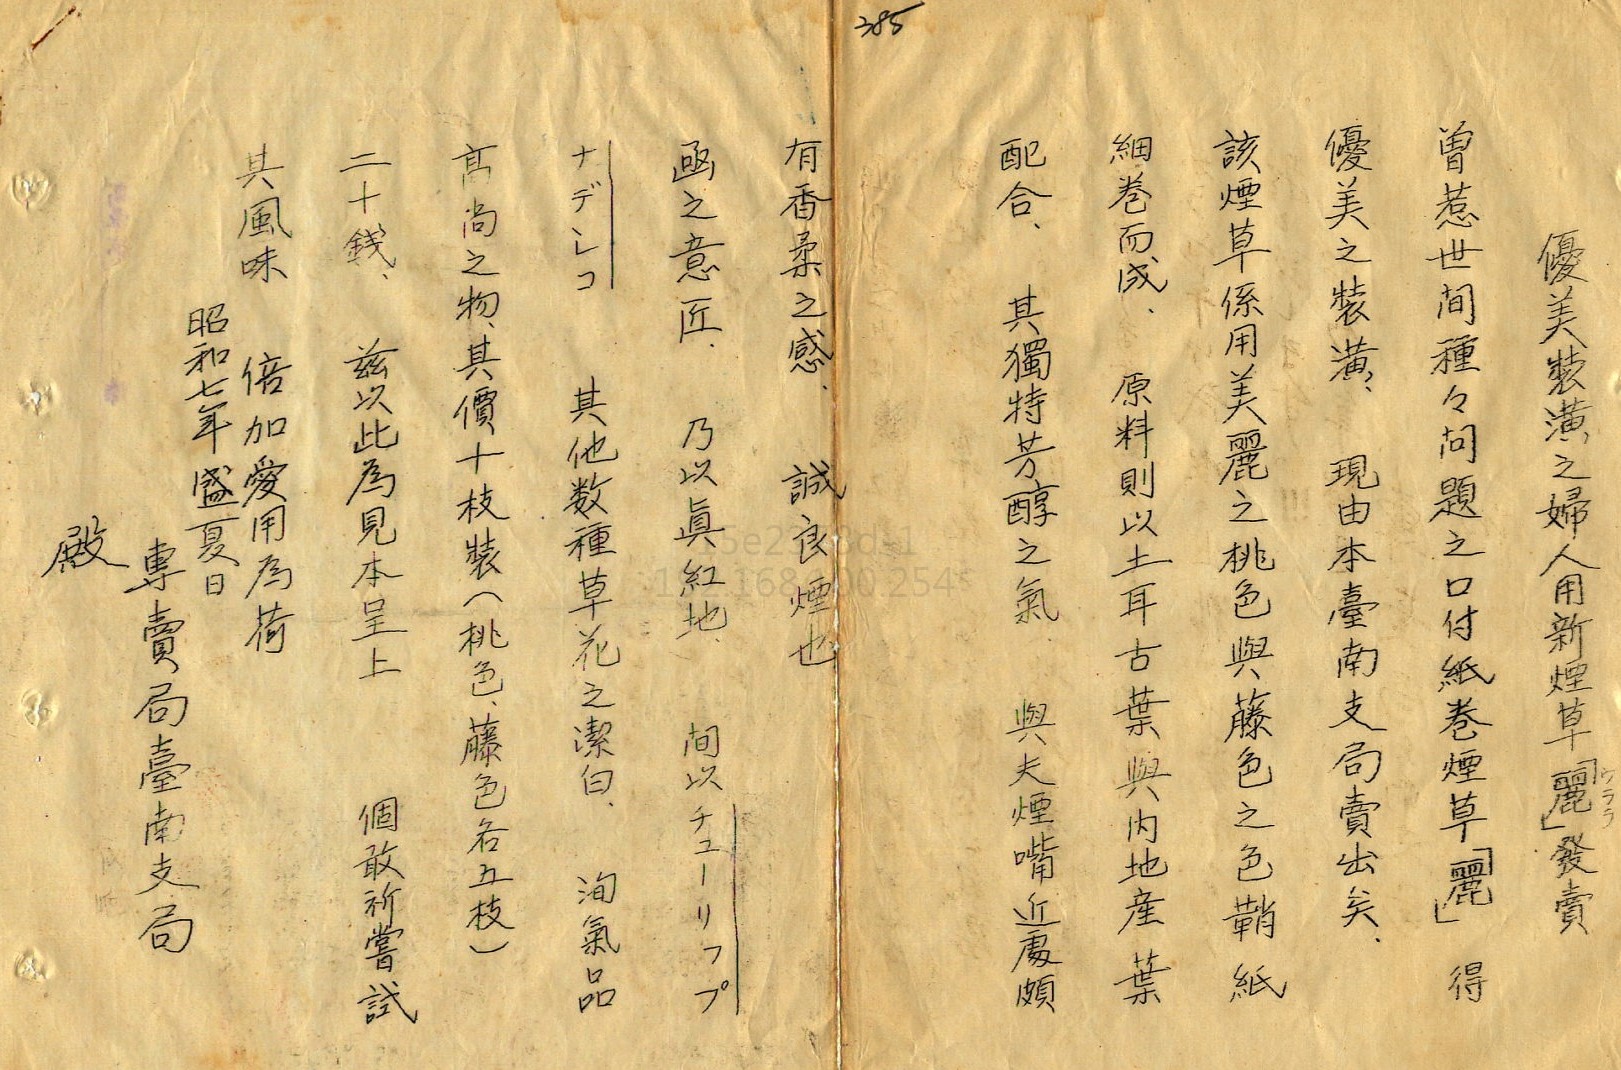 385
優美裝潢之婦人用新煙草「麗」發賣
ウララ
曾惹世間種々问題之口付紙卷煙草「麗」 得
優美之裝潢、 現由本臺南支局賣出矣、
該煙草係用美麗之桃色與藤色之色鞘紙
細卷而成、 原料則以土耳古葉與内地産葉
配合、 其獨特芳醇之氣、 與夫煙嘴近處頗
有香柔之感、 誠良煙也
凾之意匠、 乃以眞紅地、 间以チューリップ
ナデシコ 其他数種草花之潔白、 洵氣品
髙尚之物、其價十枝裝(桃色、藤色各五枝)
二十錢、 茲以此為見本呈上 個敢祈嘗試
其風味 倍加愛用為荷
昭和七年盛夏日
專賣局臺南支局
殿
192.168.100.254